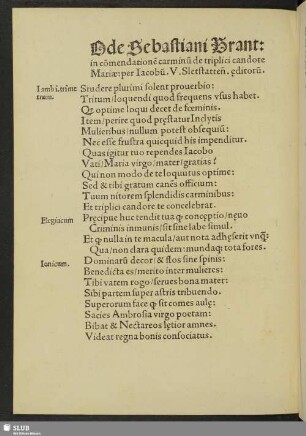 Ode Sebastiani Brant:
in cõmendationẽ carminũ de triplici candore
Mariæ: per Iacobũ. V. Sletstatteñ. ęditorũ.
Iambi.trime
trum.
Studere plurimi solent prouerbio:
Tritum / loquendi quod frequens vsus habet.
Qȝ optime loqui decet de fœminis.
Item / perire quod pręstatur Inclytis
Mulieribus / nullum potest obsequiũ:
Nec esse frustra quicquid his impenditur.
Quas igitur tuo rependes Iacobo
Vati / Maria virgo / mater / gratias?
Qui non modo de te loquutus optime:
Sed & tibi gratum canẽs officium:
Tuum nitorem splendidis carminibus:
Et triplici candore te concelebrat.
Elegiacum
Pręcipue huc tendit tua qȝ conceptio / nęuo
Criminis inmunis / sit sine labe simul.
Et qȝ nulla in te macula / aut nota adhęserit vnqȝ:
Qua / non clara quidem: mundaqȝ tota fores.
Ionicum.
Dominarũ decor / & flos sine spinis:
Benedicta es / merito inter mulieres:
Tibi vatem rogo / serues bona mater:
Sibi partem super astris tribuendo.
Superorum face qȝ sit comes aulę:
Sacies Ambrosia virgo poetam:
Bibat & Nectareos lętior amnes.
Videat regna bonis consociatus.
SLUB